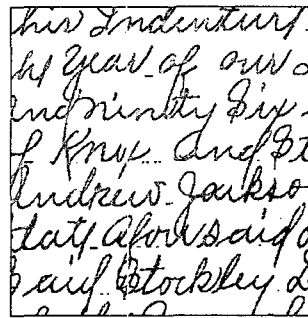 his Indenture
he Year of our
and ninety Six
of Knox And St
Andrew Jackso
date aforesaid
Said Stockley D